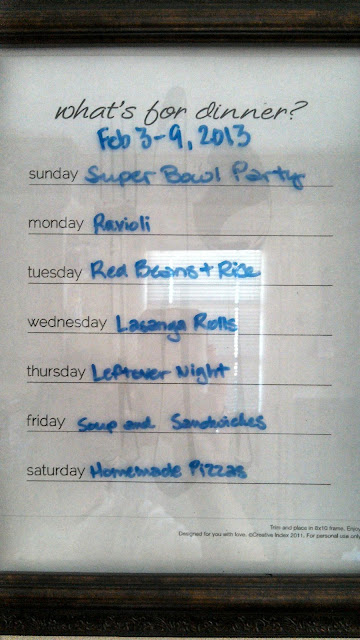 what's for dinner?
Feb 3-9, 2013
sunday Super Bowl Party
monday Ravioli
tuesday Red Beans + Rice
wednesday Lasanga Rolls
thursday Leftover Night
friday Soup and Sandwiches
saturday Homemade Pizzas
Trim and place in 8x10 frame. Enjoy
Designed for you with love. ©Creative Index 2011. For personal use only